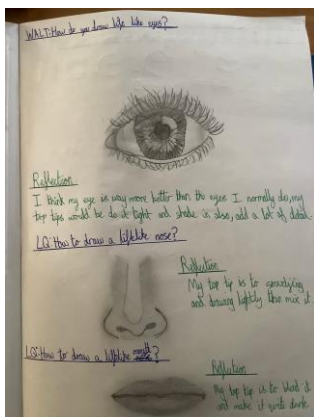 WALT:How do you draw life like eyes?
Reflection
I think my eye is way more better than the eyes I normally do, my
top tips would be do it light and shade in also, add a lot of detail.
LQ:How to draw a lifelike nose?
Reflection
My top tip is to
and drawing lightly then mix it
LQ:How to draw a lifelike mouth?
Reflection
My top tip is to blend it
and make it quite dark